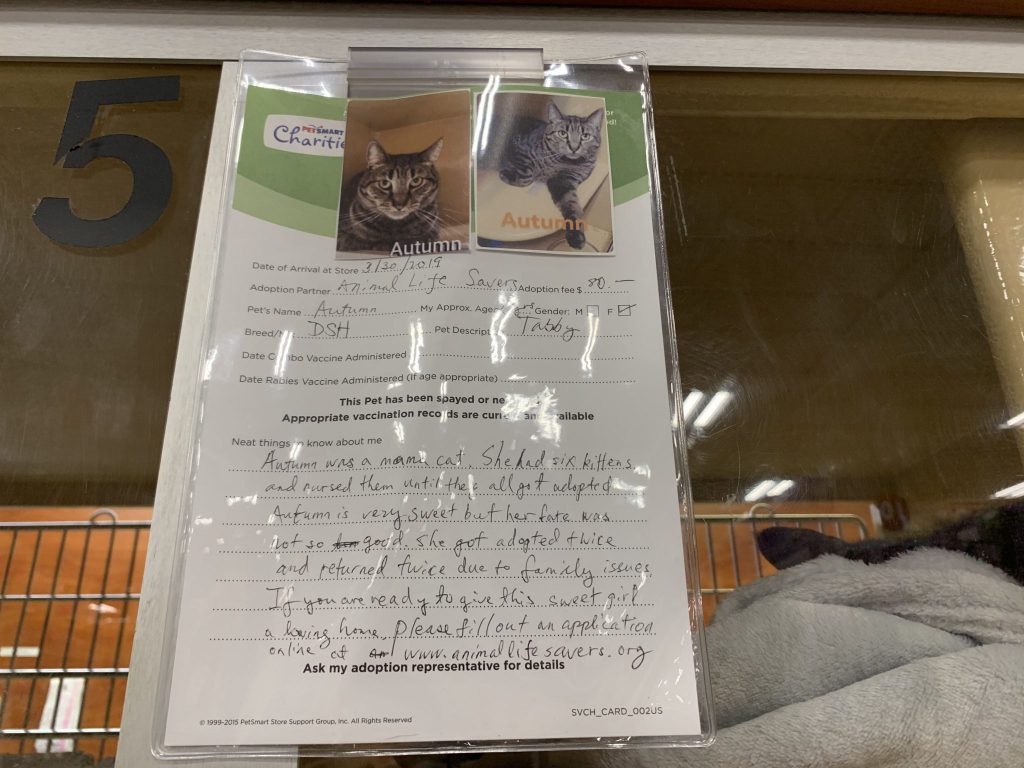 5
PETSMART
Charitie
Autumn
Autumn
Date of Arrival at Store 3/30/2019
Adoption Partner Animal Life Savers Adoption fee $ 80.—
Pet's Name Autumn My Approx. Age Gender: M F
Breed/ DSH Pet Descript Tabby
Date Combo Vaccine Administered
Date Rabies Vaccine Administered (if age appropriate)
This Pet has been spayed or ne
Appropriate vaccination records are current and available
Neat things to know about me
Autumn was a mama cat. She had six kittens
and nursed them until they all got adopted
Autumn is very sweet but her fate was
not so good. She got adopted twice
and returned twice due to family issues.
If you are ready to give this sweet girl
a loving home, please fill out an application
online at www.animallifesavers.org
Ask my adoption representative for details
© 1999-2015 PetSmart Store Support Group, Inc. All Rights Reserved
SVCH_CARD_002US